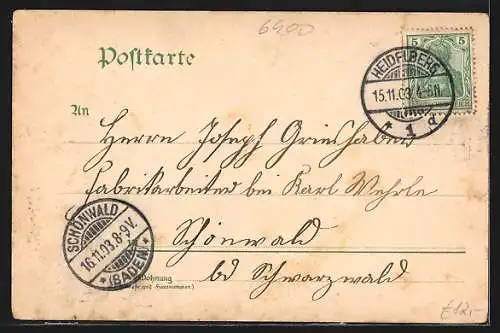 6900
Postkarte
5 5
HEIDELBERG
15.11.03. 4-5N.
* 1 d
An
Herrn Joseph Grieshaber
Fabrikarbeiter bei Karl Wehrle
in
Schönwald
bd Schwarzwald
SCHÖNWALD
16.11.03. 8-9V.
* (BADEN) *
Wohnung
(Straße und Hausnummer)
£12,-